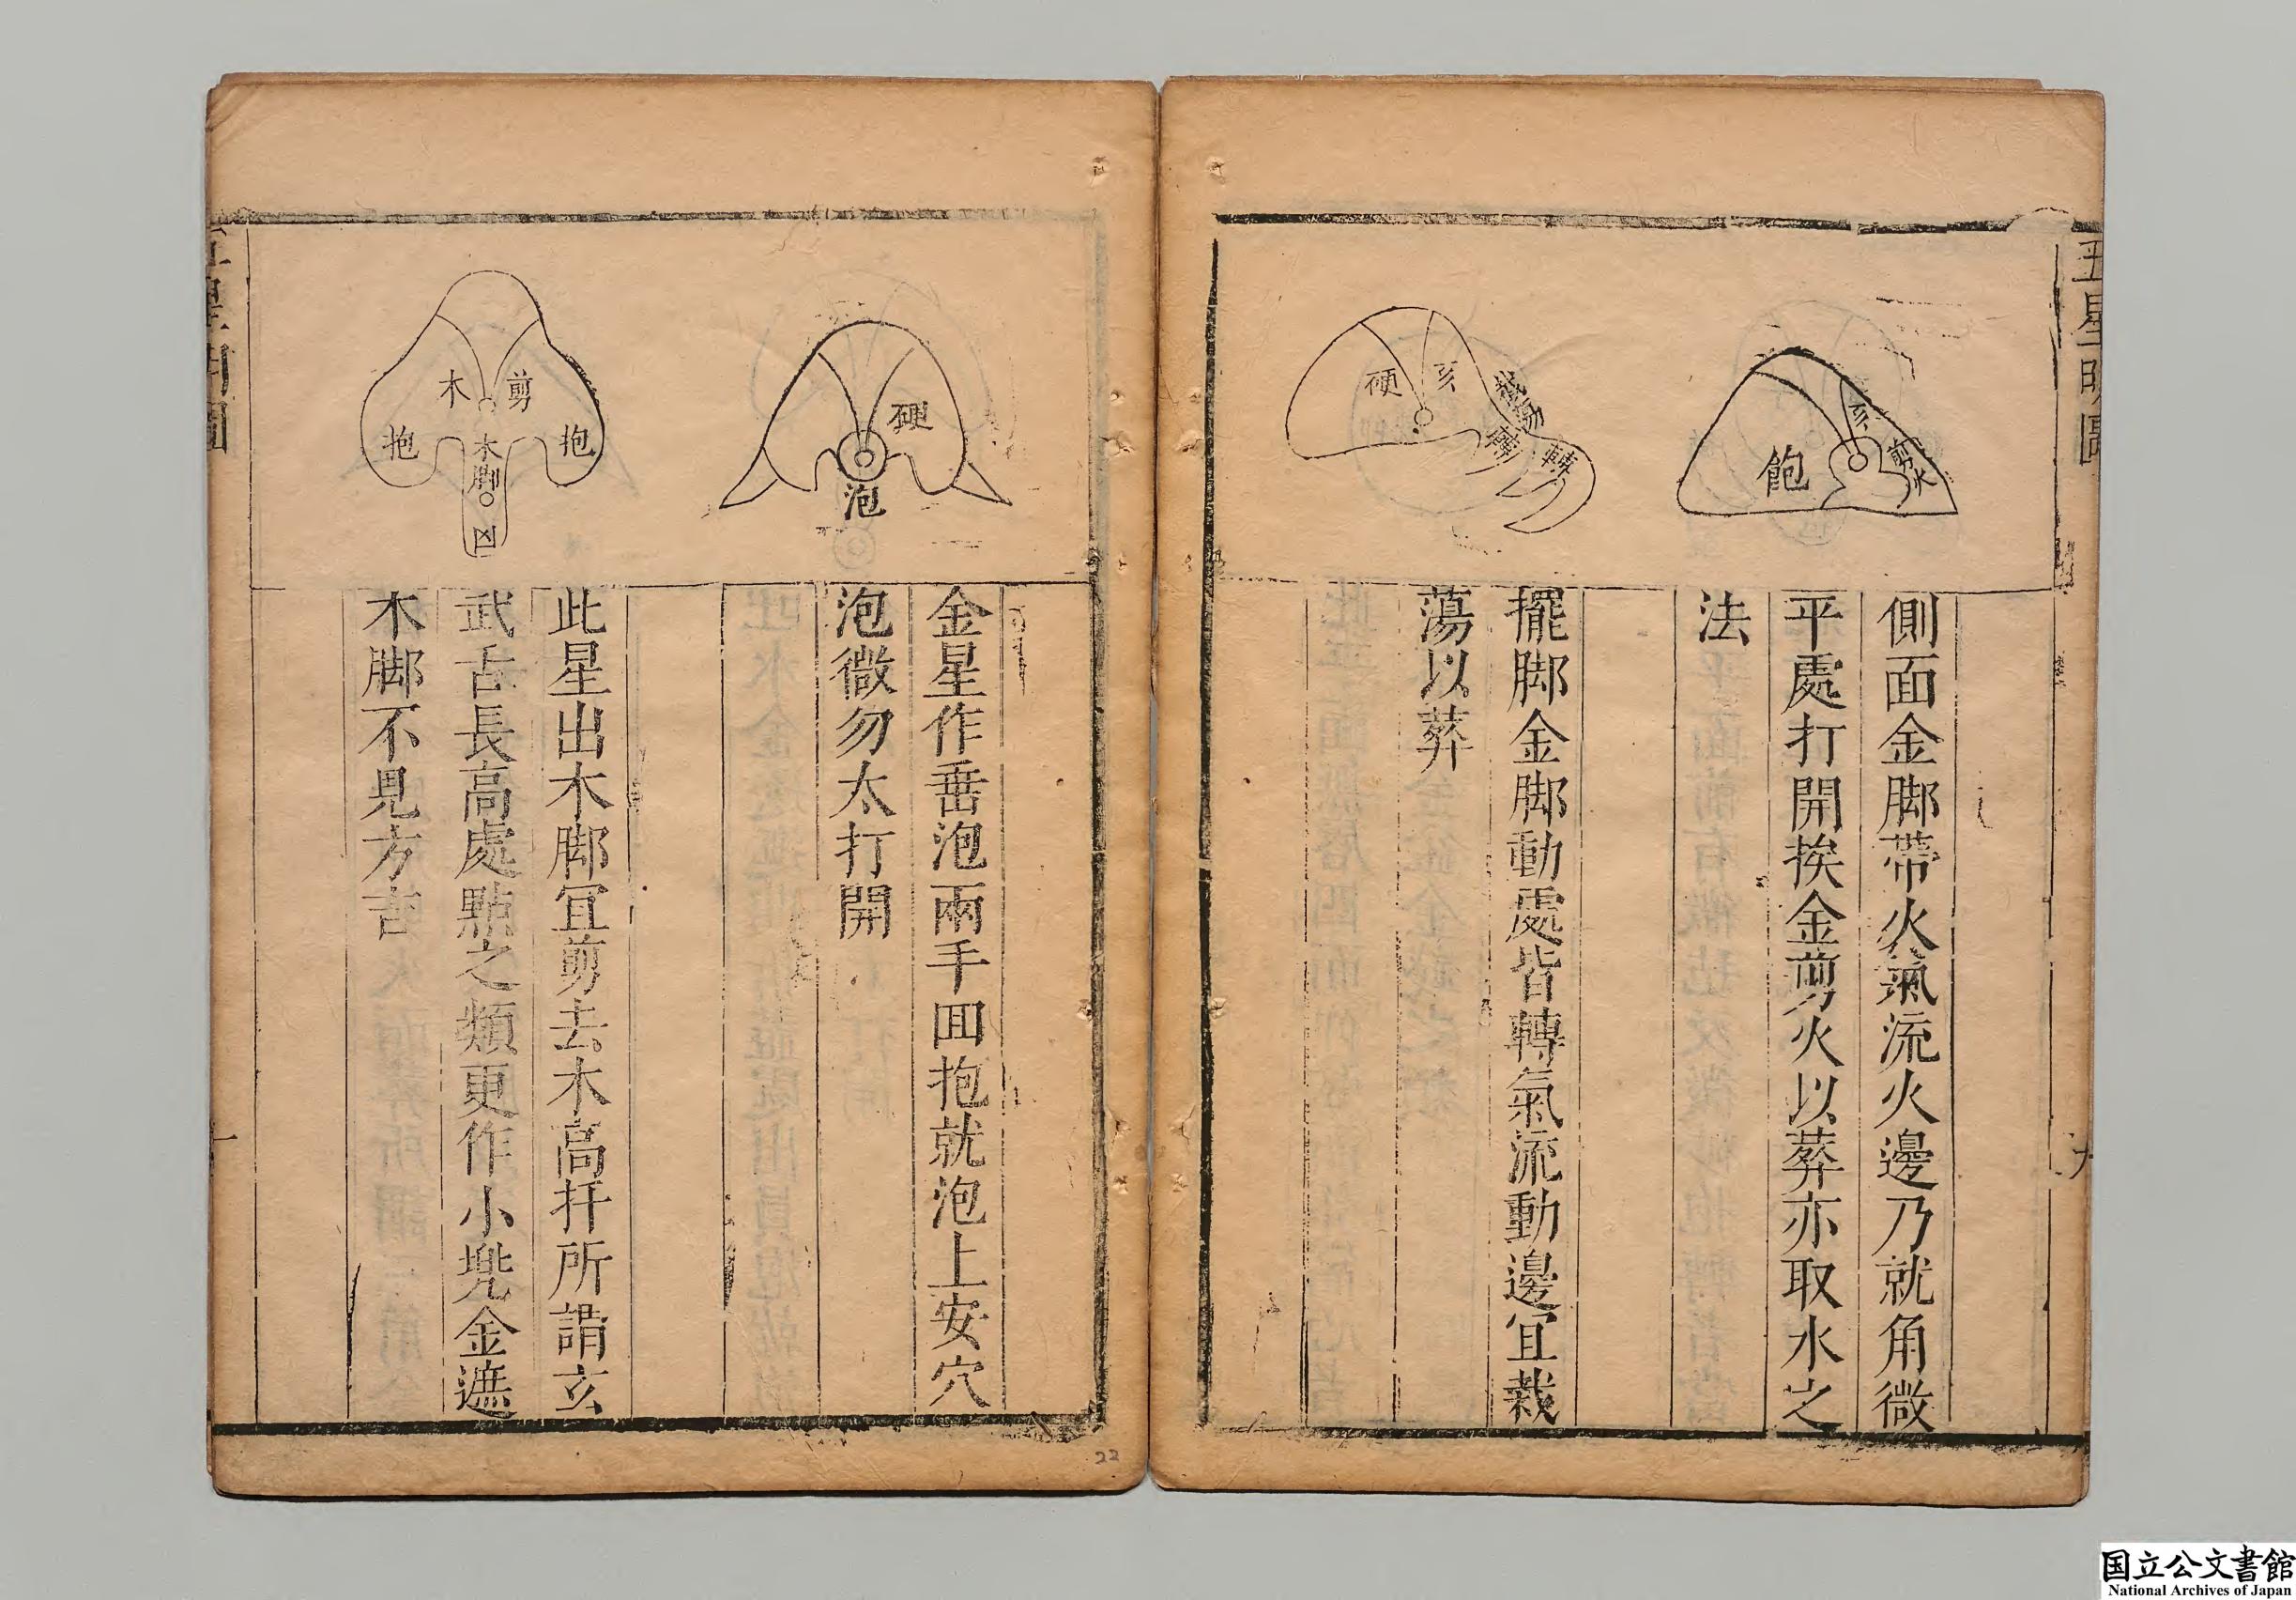 五星明圖
飽
側面金脚帶火氣流火邊乃就角微
平處打開挨金剪火以葬亦取水之
法
硬
轉
轉
擺脚金脚動處皆轉氣流動邊宜裁
蕩以葬
硬
泡
金星作垂泡兩手囬抱就泡上安穴
泡微勿太打開
木 剪
抱 抱
木脚
凶
此星出木脚宜剪去木高扦所謂玄
武舌長高處點之類更作小兠金遮
木脚不見方吉
22
国立公文書館
National Archives of Japan